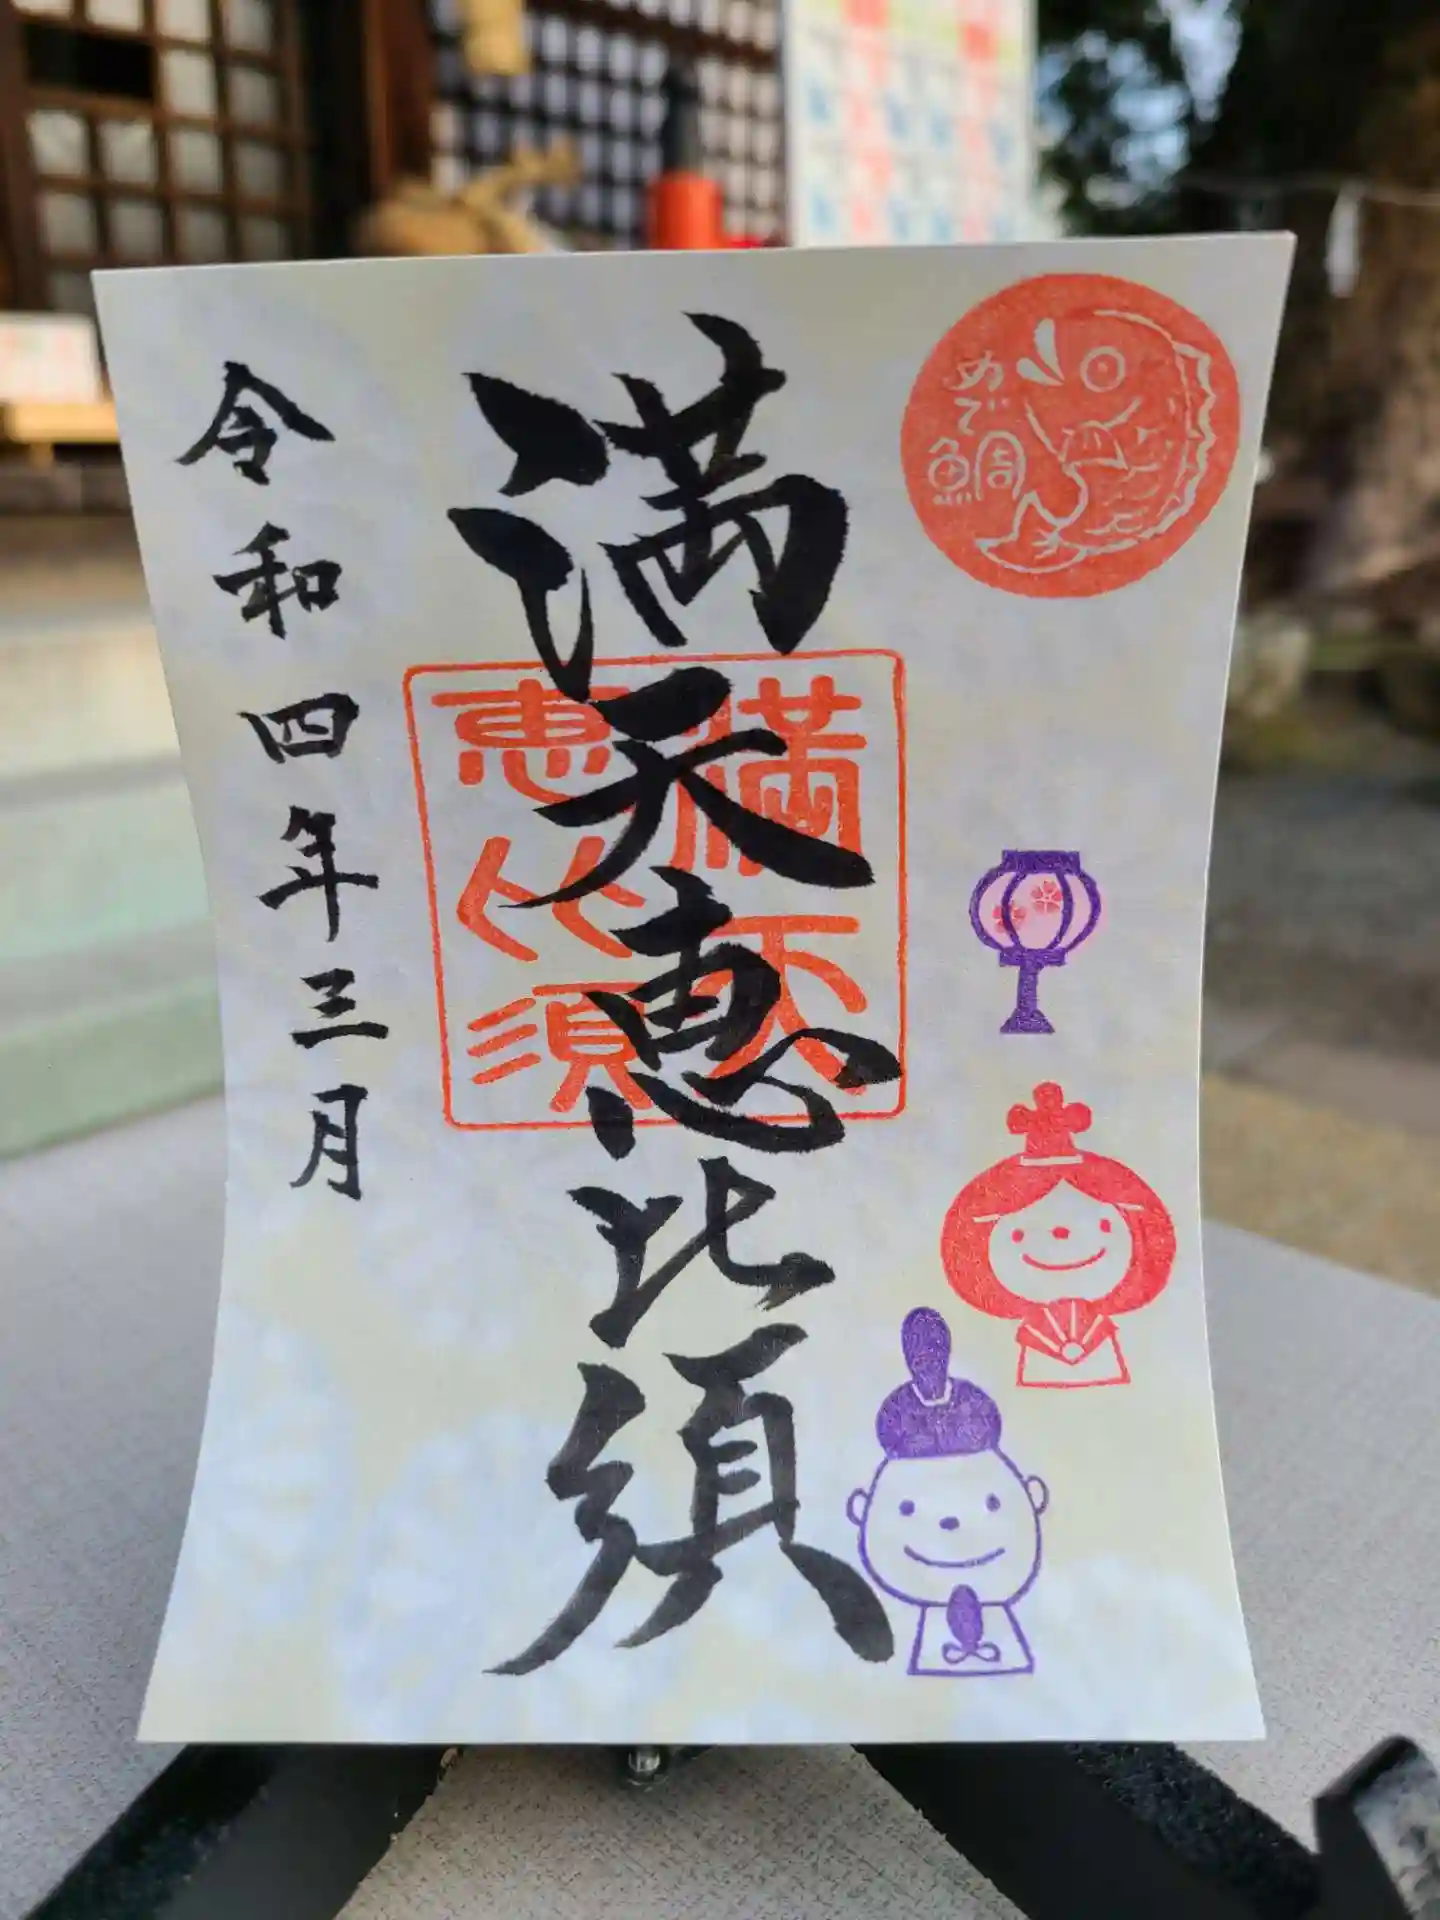 めで鯛
満天恵比須
満天
恵比須
令和四年三月